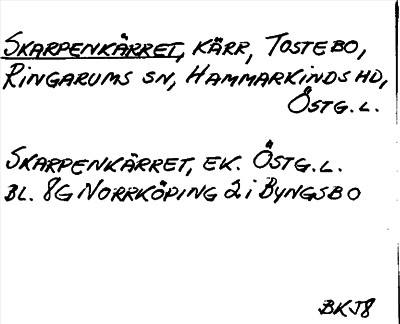 SKARPENKÄRRET, KÄRR, TOSTEBO,
RINGARUMS SN, HAMMARKINDS HD,
ÖSTG. L.
SKARPENKÄRRET, EK. ÖSTG. L.
BL. 8G NORRKÖPING 2 i BYNGSBO
BKJ8